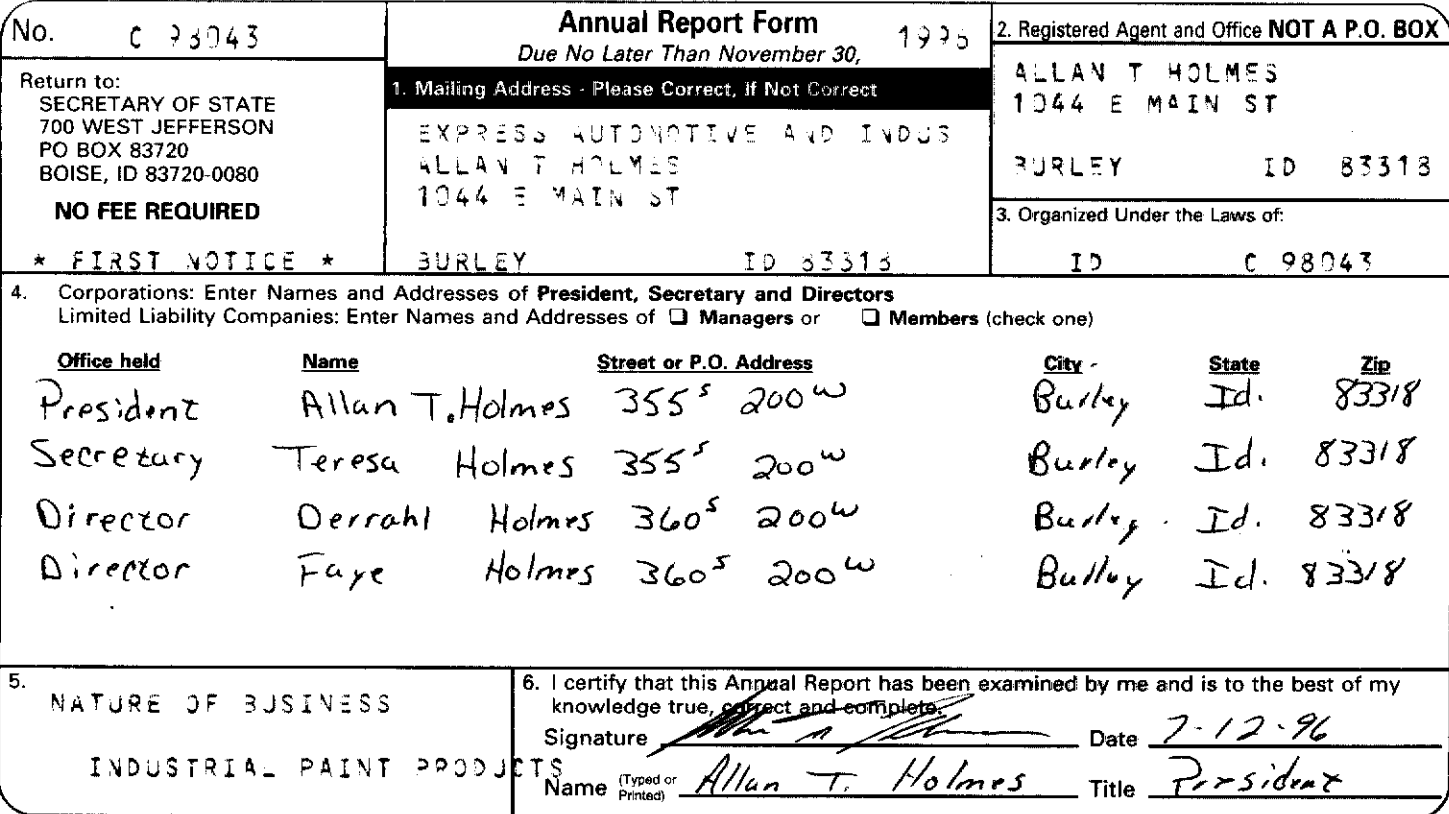 No. C 98043
Annual Report Form 1996
Due No Later Than November 30,
Return to:
SECRETARY OF STATE
700 WEST JEFFERSON
PO BOX 83720
BOISE, ID 83720-0080
NO FEE REQUIRED
* FIRST NOTICE *
1. Mailing Address - Please Correct, If Not Correct
EXPRESS AUTOMOTIVE AND INDUS
ALLAN T HOLMES
1044 E MAIN ST
BURLEY ID 83318
2. Registered Agent and Office NOT A P.O. BOX
ALLAN T HOLMES
1044 E MAIN ST
BURLEY ID 83318
3. Organized Under the Laws of:
ID C 98043
4. Corporations: Enter Names and Addresses of President, Secretary and Directors
Limited Liability Companies: Enter Names and Addresses of ❑ Managers or ❑ Members (check one)
Office held Name Street or P.O. Address City State Zip
President Allan T. Holmes 355 S 200 W Burley Id. 83318
Secretary Teresa Holmes 355 S 200 W Burley Id. 83318
Director Derrahl Holmes 360 S 200 W Burley Id. 83318
Director Faye Holmes 360 S 200 W Burley Id. 83318
5. NATURE OF BUSINESS
INDUSTRIAL PAINT PRODUCTS
6. I certify that this Annual Report has been examined by me and is to the best of my
knowledge true, correct and complete.
Signature Date 7-12-96
Name (Typed or Printed) Allan T. Holmes Title President